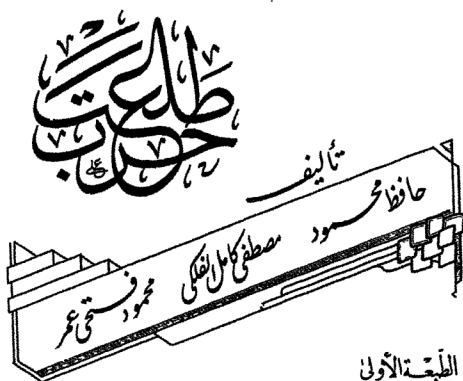 طلعت
حرب
تأليف
حافظ محمود مصطفى كامل الفلكي محمود فتحي عمر
الطبعة الأولى